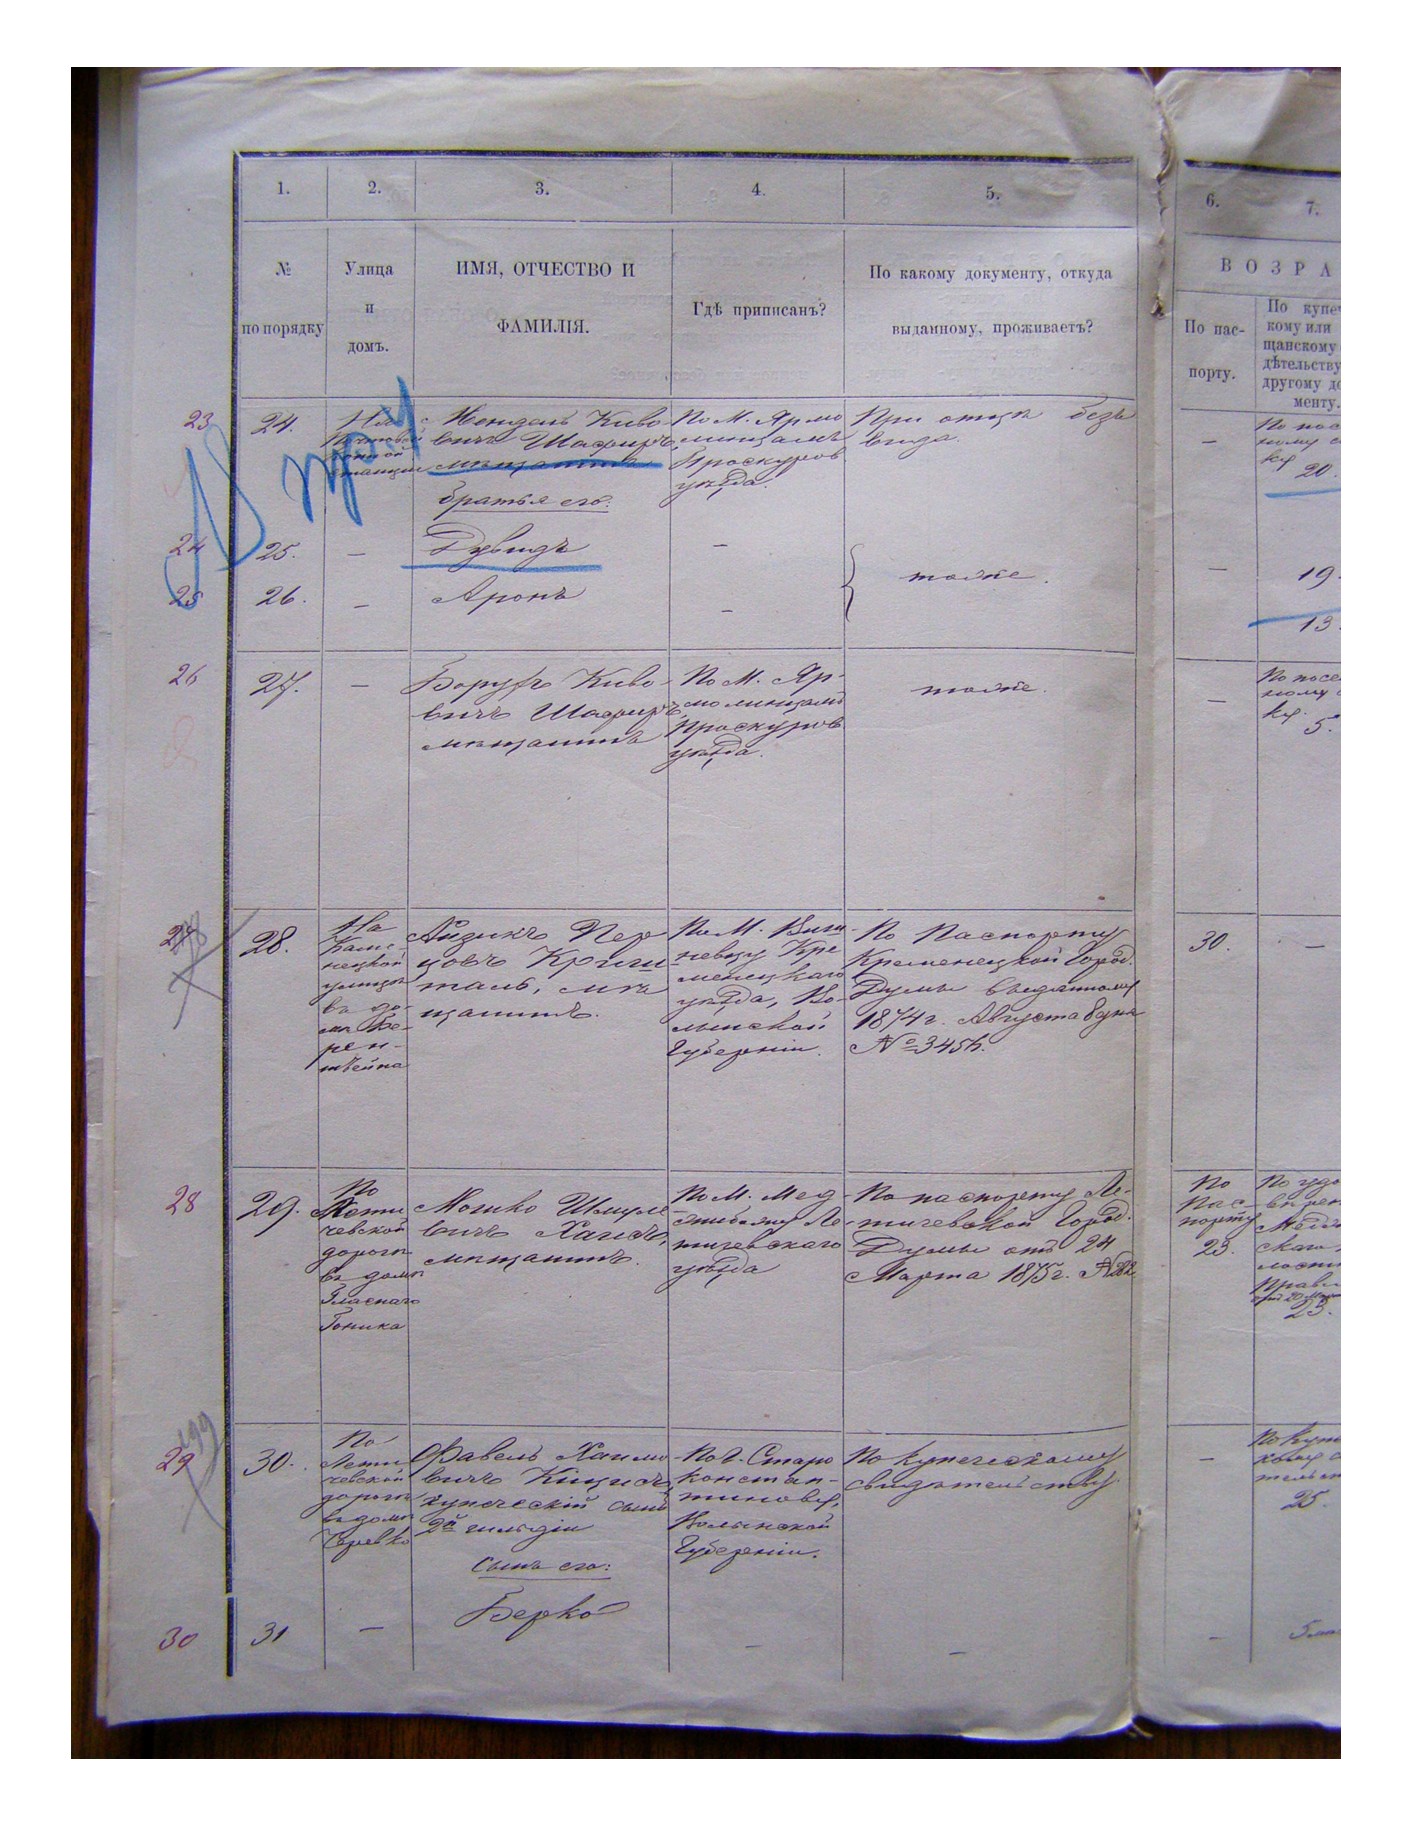 1.
2.
3.
4.
5.
6.
7.
№
по порядку
Улица
и
домъ.
ИМЯ, ОТЧЕСТВО И
ФАМИЛІЯ.
Гдѣ приписанъ?
По какому документу, откуда
выданному, проживаетъ?
ВОЗРА
По пас-
порту.
По купе
кому или
щанскому
дѣтельству
другому до
менту.
23
24.
Киво-
вичъ Шафиръ,
мѣщанинъ
По М. Ярмо
линцамъ
Проскуров
уѣзда.
При отцѣ безъ
вида.
—
20.
братья его:
24
25.
—
Дувидъ
—
тоже.
—
19.
25
26.
—
Аронъ
—
13.
26
27.
—
Борухъ Киво-
вичъ Шафиръ,
мѣщанинъ
По М. Яр-
молинцамъ
Проскуров
уѣзда.
тоже.
—
5.
28.
На
Каме-
нецкой
улицѣ
въ до-
мѣ Бе-
рен-
штейна
Айзикъ Пер
цовъ Криш
таль, мѣ
щанинъ.
По М. Виш-
невцу Кре
менецкаго
уѣзда, Во-
лынской
Губерніи.
По Паспорту
Кременецкой Город.
Думы выданному
1874 г. Августа 8 дня
№ 3456.
30.
—
28
29.
По
Лети
чевской
дорогѣ
въ домѣ
Гласнаго
Гоника
Мошко Шмуле
вичъ Хаисъ,
мѣщанинъ.
По М. Мед-
жибожу Ле-
тичевскаго
уѣзда
По паспорту Ле-
тичевской Город.
Думы отъ 24
Марта 1875 г.
По
Пас
порту
23.
23.
29
199
30.
По
Лети
чевской
дорогѣ
въ домѣ
Черевко
Фавель Хаимо
вичъ Кицисъ,
купеческій сынъ
2й гильдіи
По г. Старо
констан-
тинову,
Волынской
Губерніи.
По купеческому
свидѣтельству.
—
25.
Сынъ его:
30
31
—
Берко
—
—
—